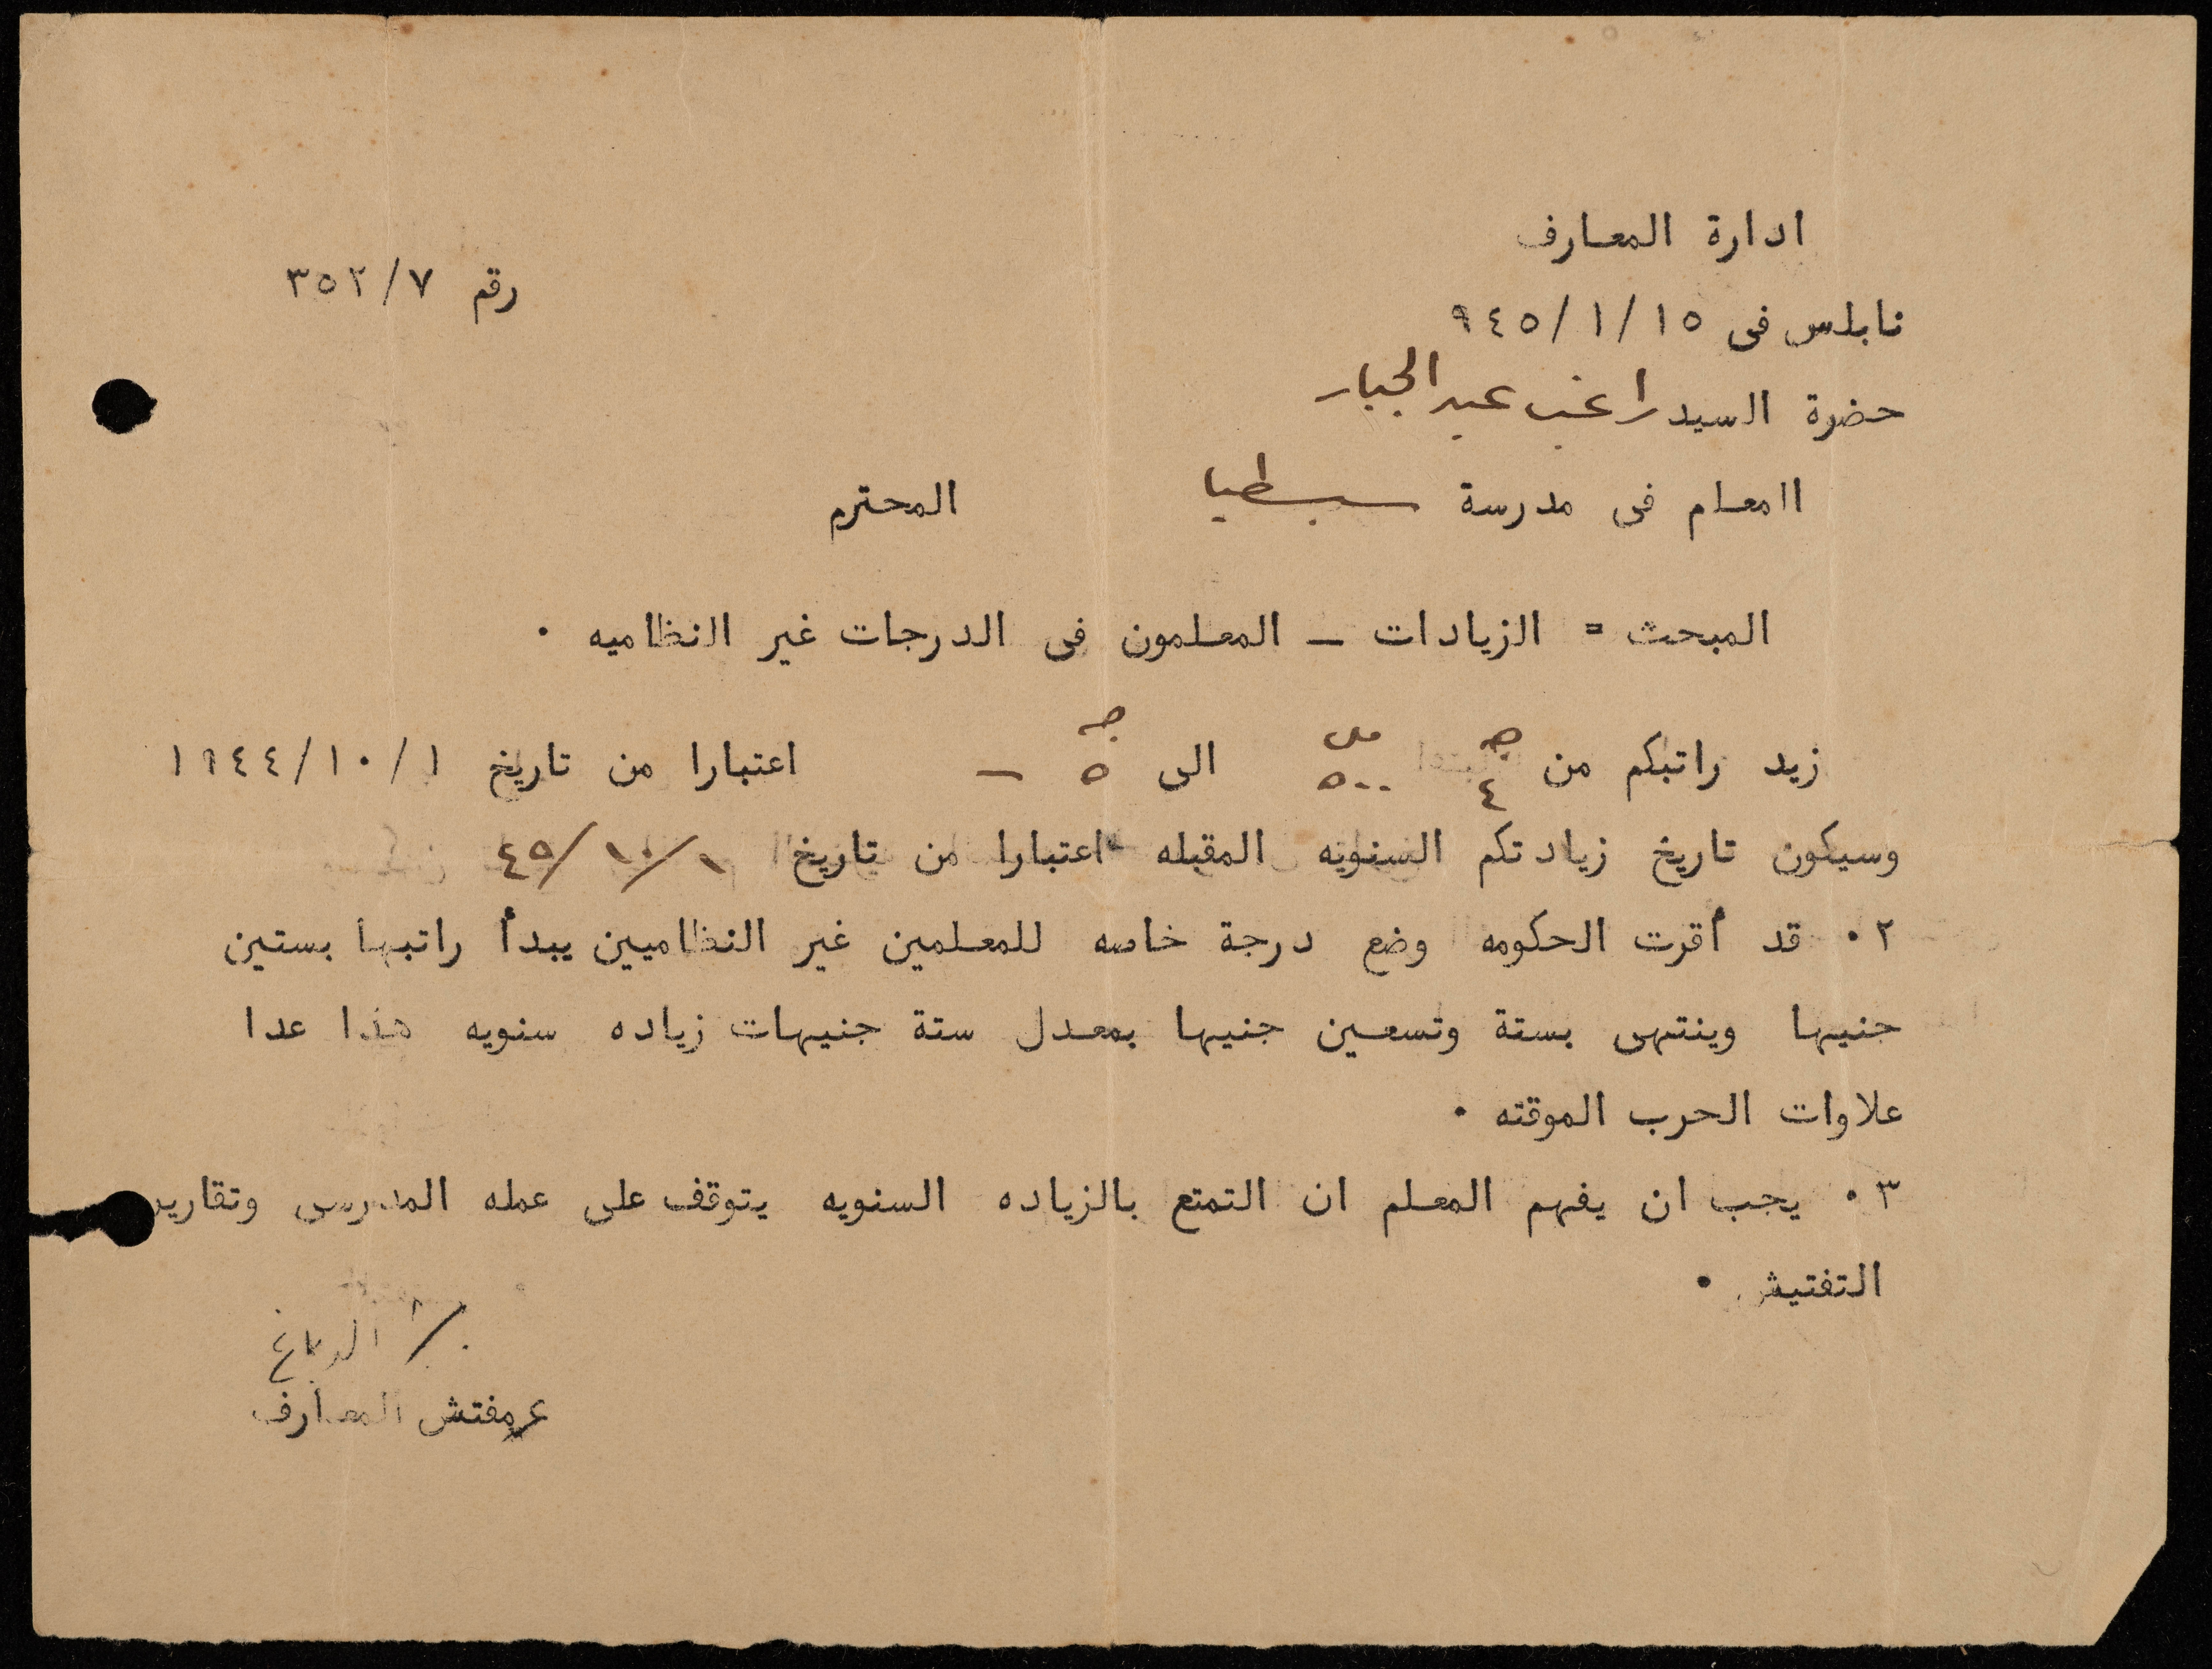 ادارة المعارف
رقم ٣٥٢/٧
نابلس فى ١٥/ ١/ ٩٤٥
حضرة السيد راغب عبد الجبار
المعلم فى مدرسة سبسطيا المحترم
المبحث = الزيادات ـ المعلمون فى الدرجات غير النظاميه ٠
زيد راتبكم من ٤ جـ ٥٠٠ مل الى ٥ جـ – اعتبارا من تاريخ ١/ ١٠/ ١٩٤٤
وسيكون تاريخ زيادتكم السنويه المقبله اعتبارا من تاريخ ١/ ١٠/ ٤٥
٢ ٠ قد أقرت الحكومه وضع درجة خاصه للمعلمين غير النظاميين يبدأ راتبها بستين
جنيها وينتهى بستة وتسعين جنيها بمعدل ستة جنيهات زياده سنويه هذا عدا
علاوات الحرب الموقته ٠
٣ ٠ يجب ان يفهم المعلم ان التمتع بالزياده السنويه يتوقف على عمله المدرسى وتقارير
التفتيش ٠
الدباغ
ع مفتش المعارف